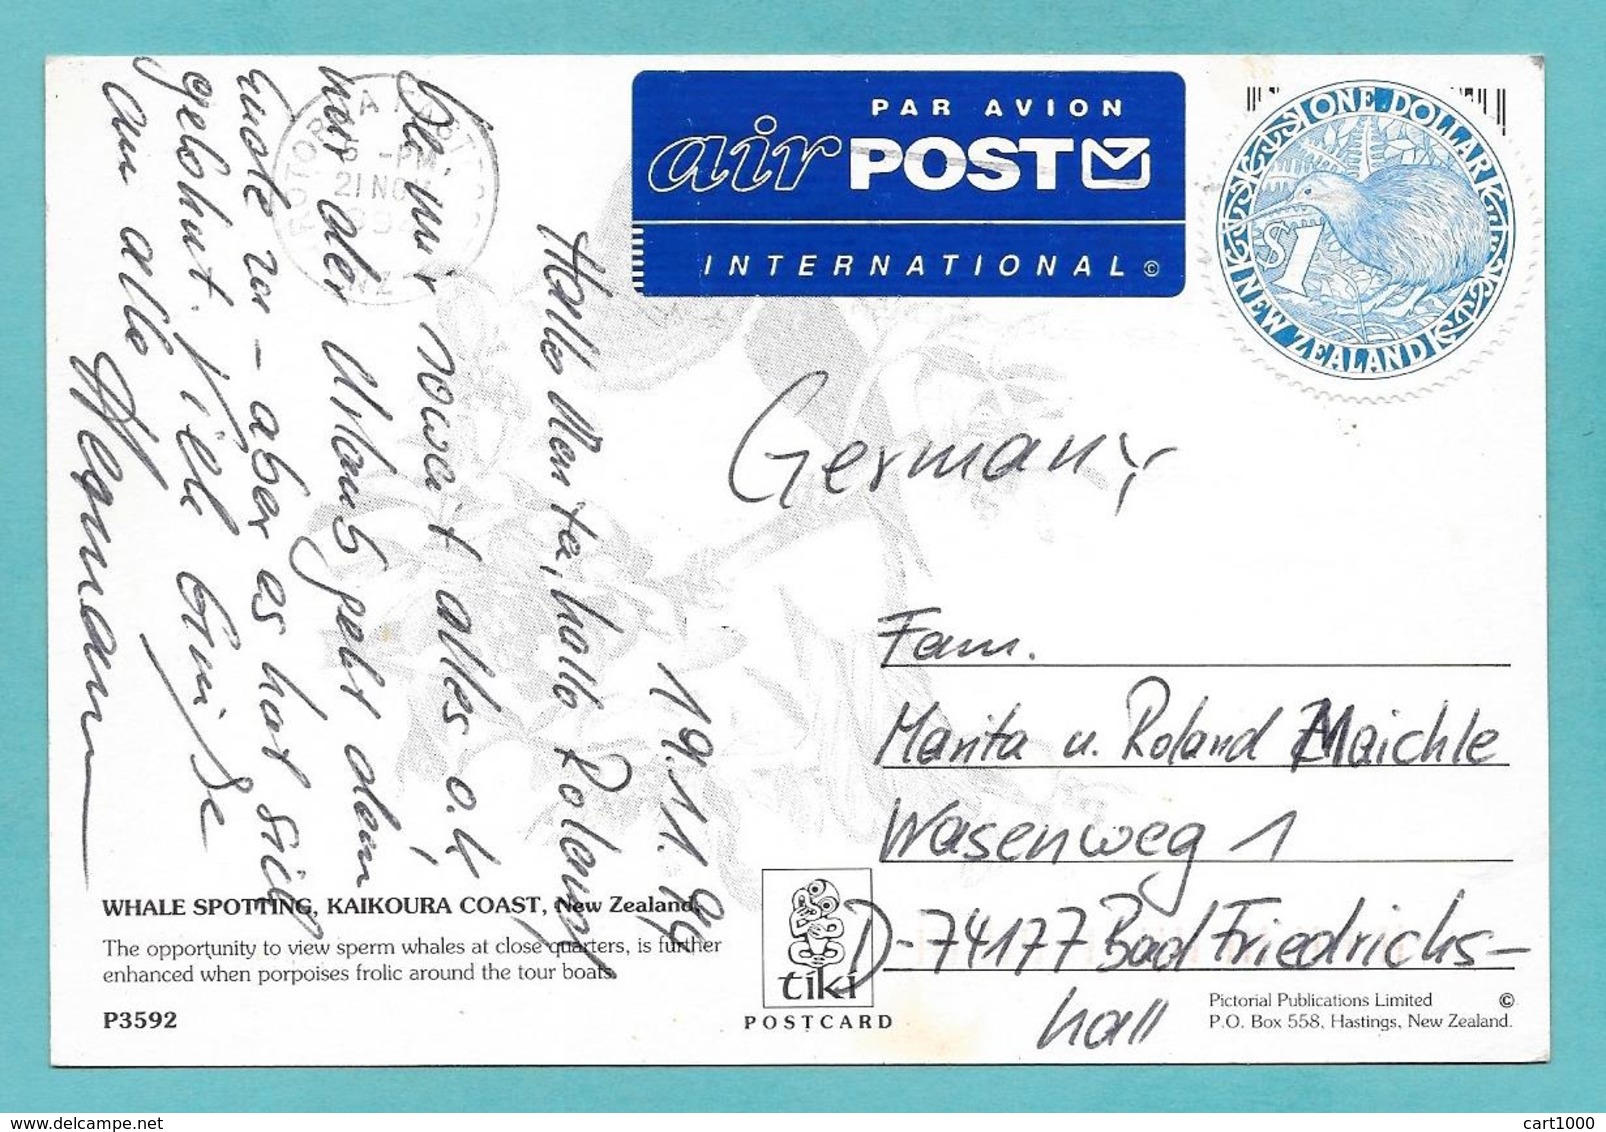 PAR AVION
air POST
INTERNATIONAL ©
ONE DOLLAR
$1
NEW ZEALAND
ROTORUA
-PM
21 NO
NZ
19.11.94
Hallo Marita, hallo Roland
Bei mir soweit alles o.k
nur der Urlaub geht dem
Ende zu - aber es hat sich
gelohnt. Viele Grüße
an alle
Hermann
Germany
Fam.
Marita u. Roland Maichle
Wasenweg 1
D-74177 Bad Friedrichs-
hall
WHALE SPOTTING, KAIKOURA COAST, New Zealand.
The opportunity to view sperm whales at close quarters, is further
enhanced when porpoises frolic around the tour boats.
P3592
tiki
POSTCARD
Pictorial Publications Limited ©
P.O. Box 558, Hastings, New Zealand.
cart1000